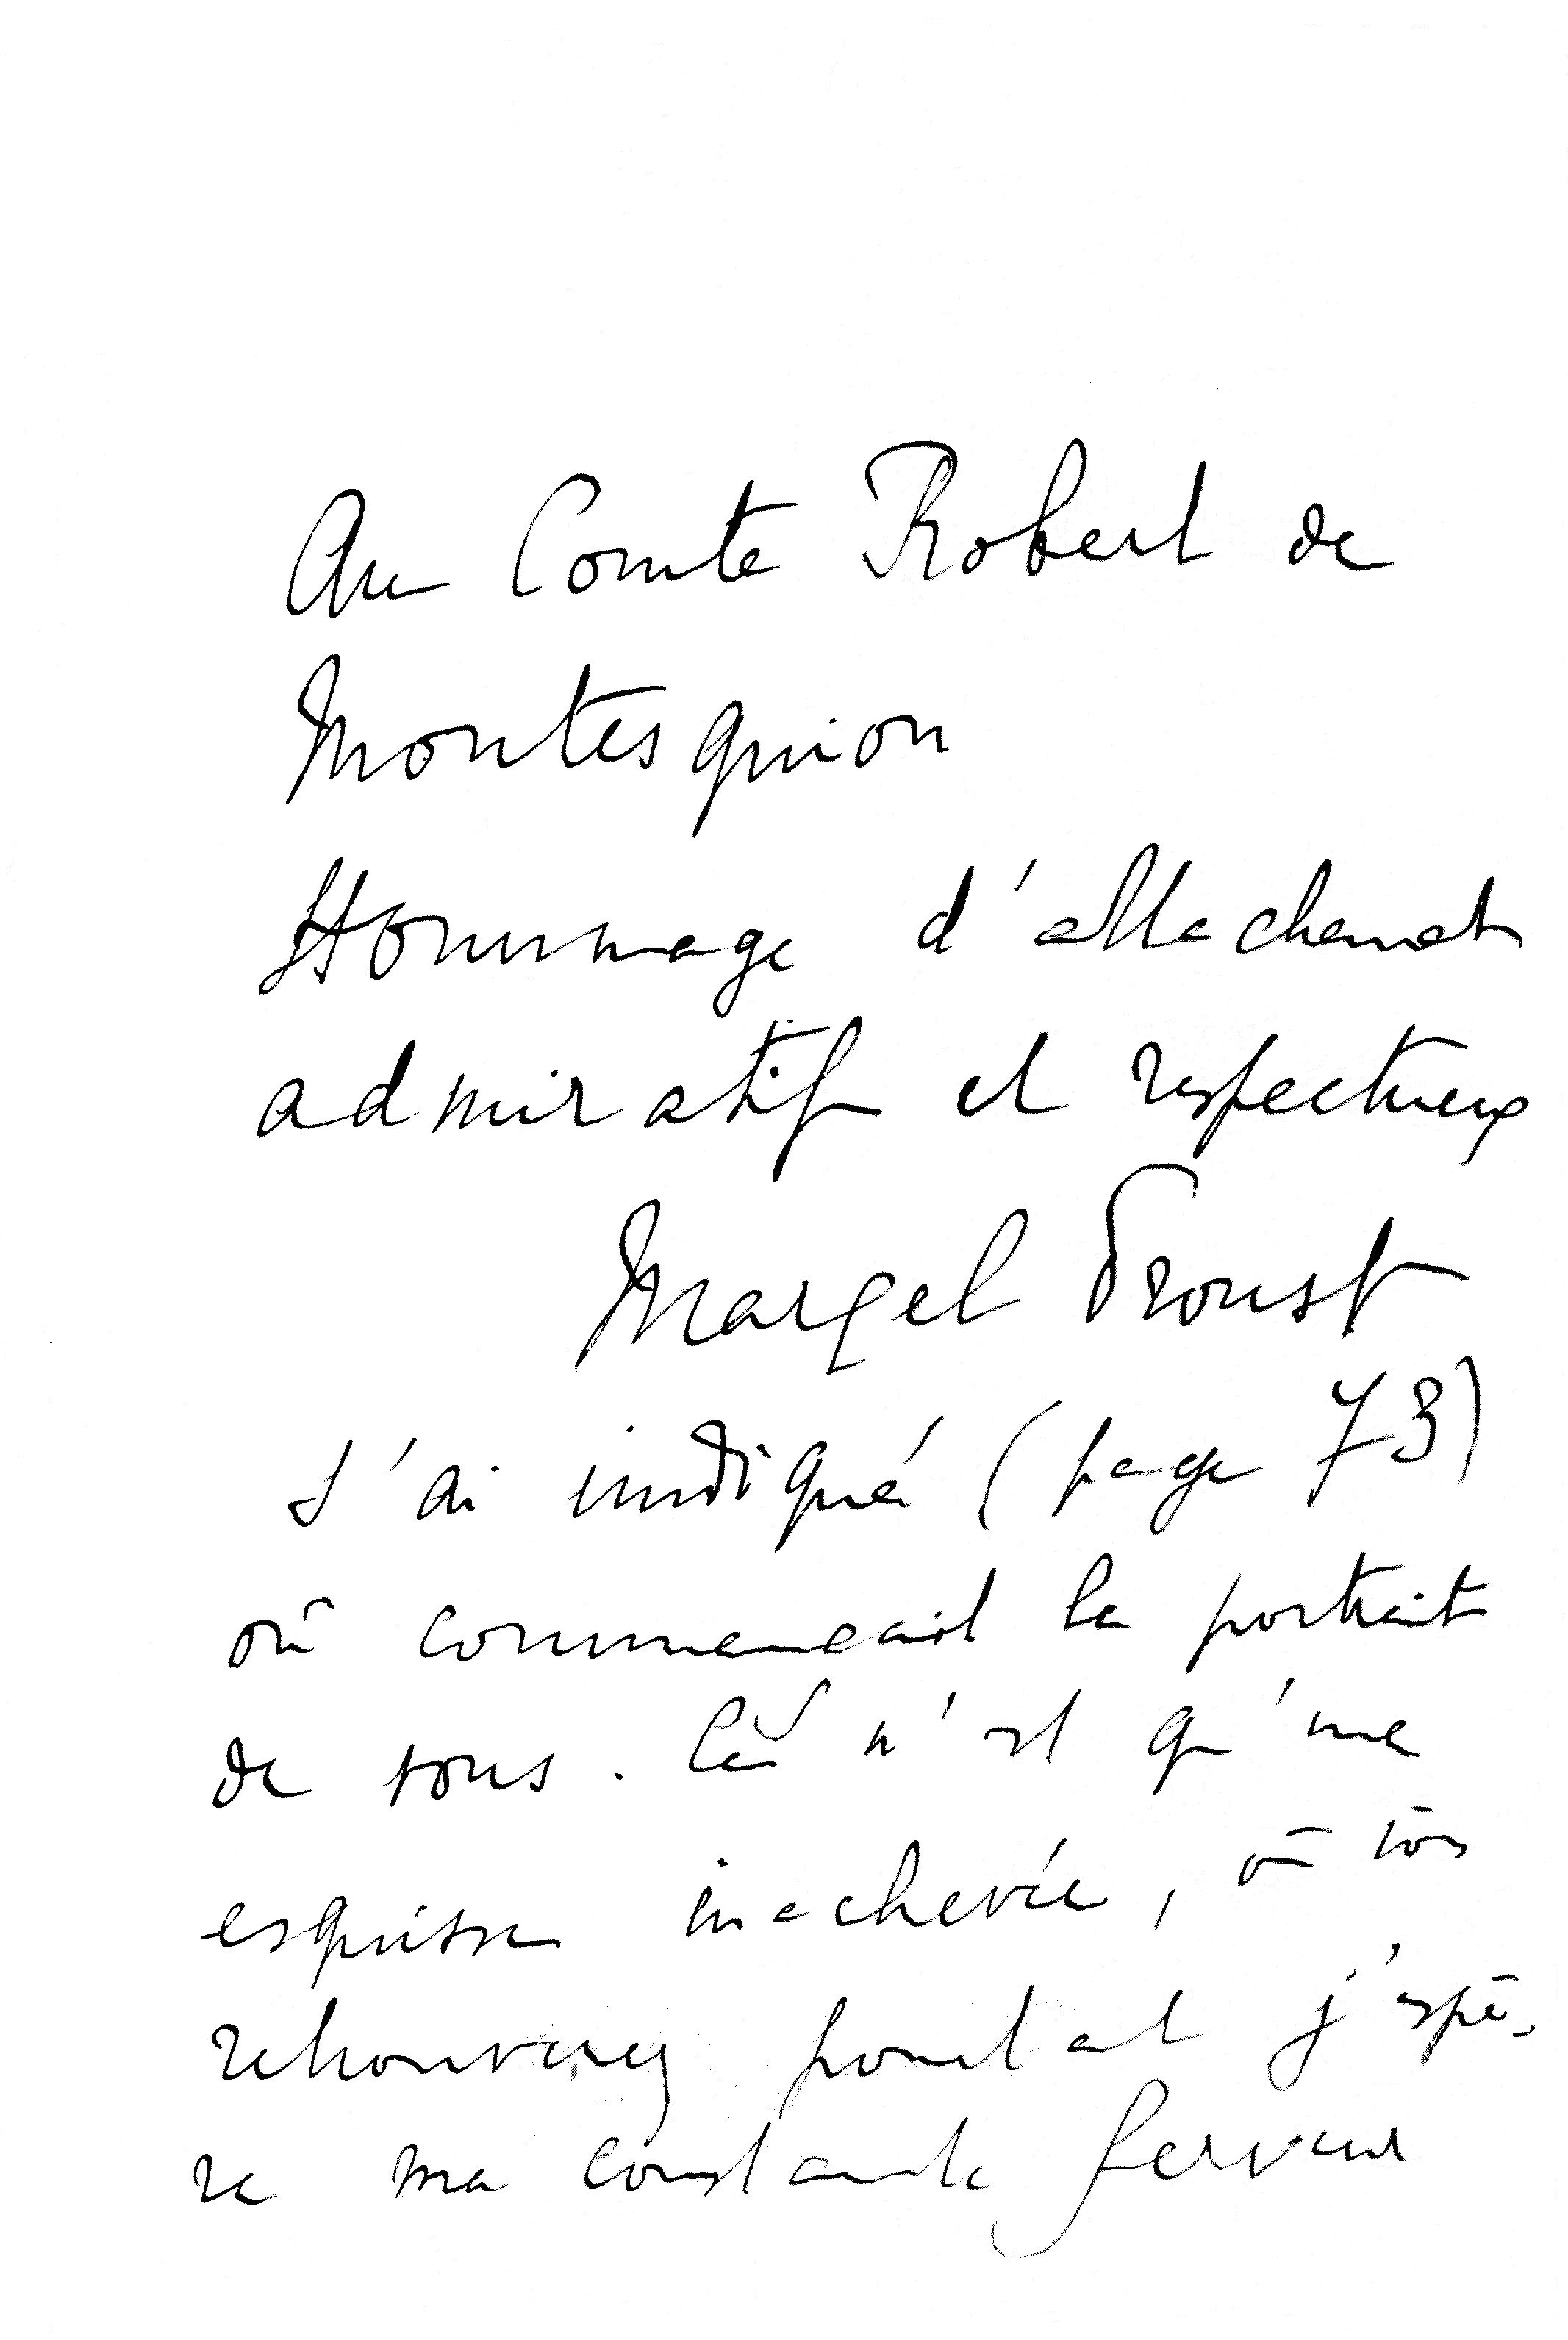 Au Comte Robert de
Montesquiou
Hommage d'attachement
admiratif et respectueux
Marcel Proust
J'ai indiqué (page 73)
où commençait le portrait
de vous. Ce n'est qu'une
esquisse inachevée, où vous
retrouverez pourtant j'espè-
re ma constante ferveur